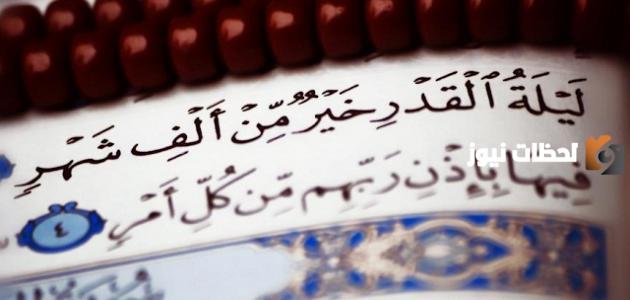 لَيْلَةُ ٱلْقَدْرِ خَيْرٌ مِّنْ أَلْفِ شَهْرٍ
لحظات نيوز
فِيهَا بِإِذْنِ رَبِّهِم مِّن كُلِّ أَمْرٍ ٤